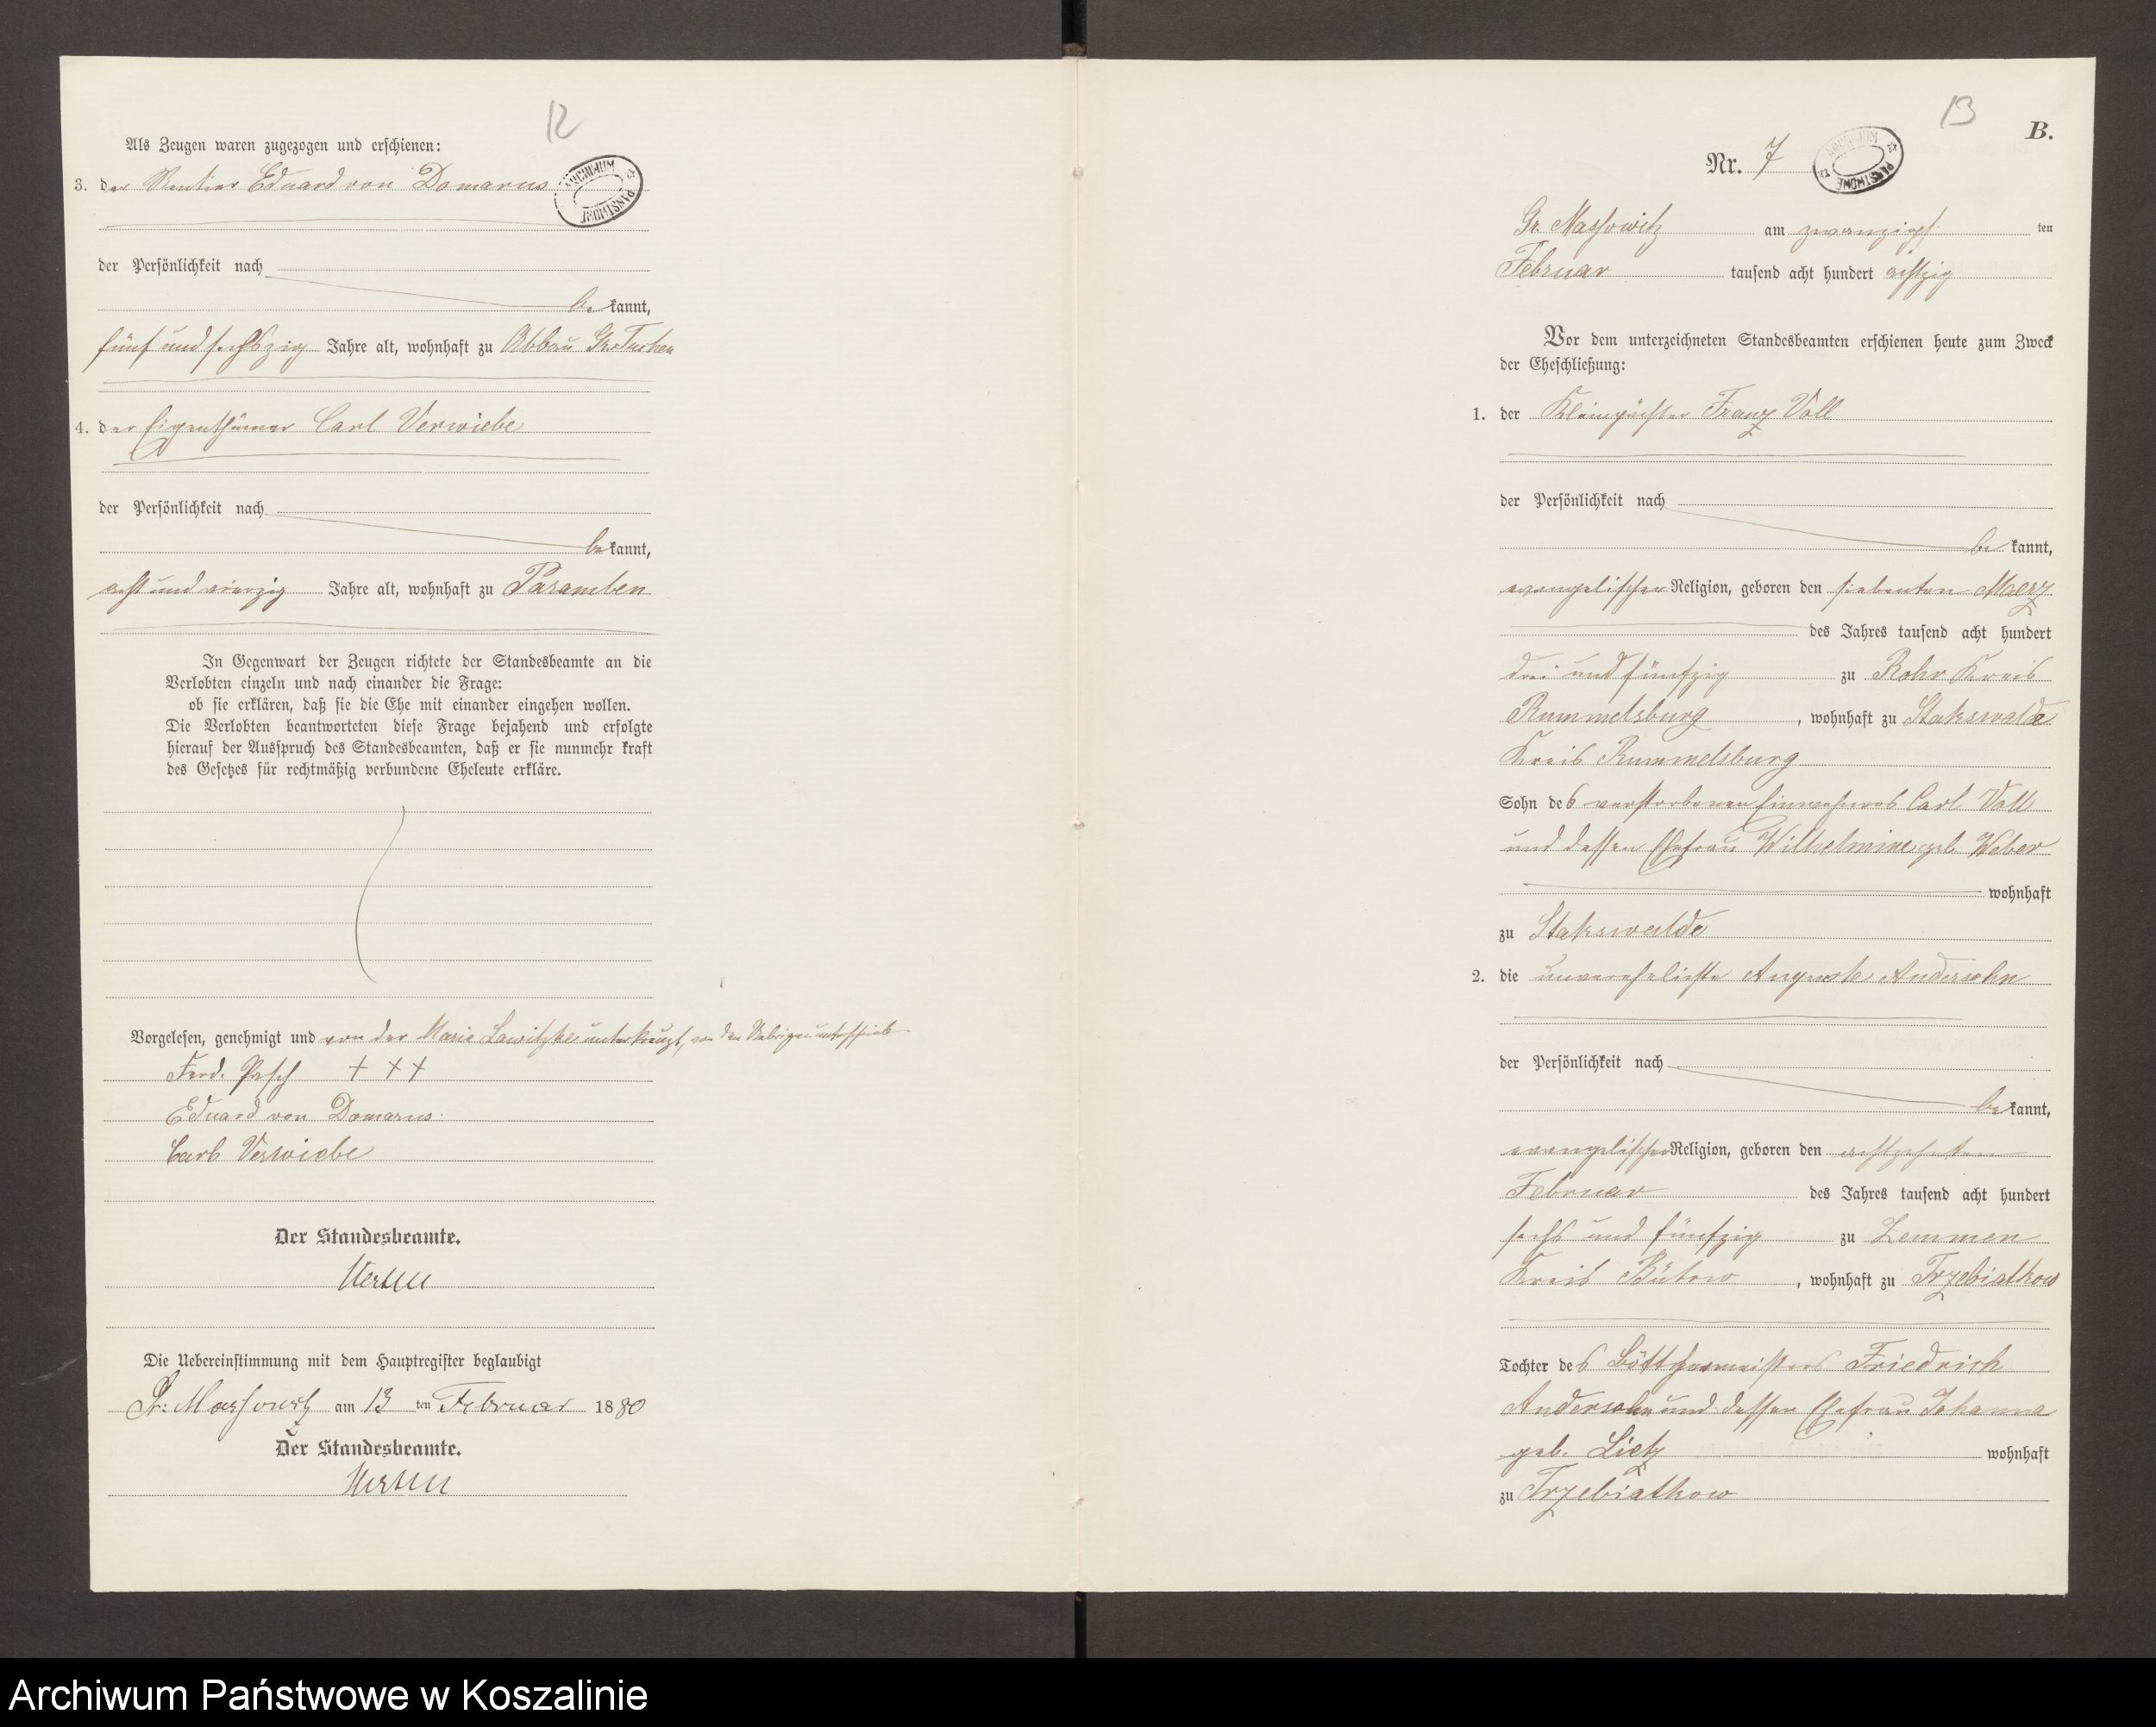 12
Als Zeugen waren zugezogen und erschienen:
3. der Rentier Eduard von Domarus
ARCHIWUM PAŃSTWOWE
der Persönlichkeit nach
bekannt,
fünf und sechszig Jahre alt, wohnhaft zu Abbau Gr. Tuchen
4. der Eigenthümer Carl Verwiebe
der Persönlichkeit nach
bekannt,
acht und vierzig Jahre alt, wohnhaft zu Paramben
In Gegenwart der Zeugen richtete der Standesbeamte an die
Verlobten einzeln und nach einander die Frage:
ob sie erklären, daß sie die Ehe mit einander eingehen wollen.
Die Verlobten beantworteten diese Frage bejahend und erfolgte
hierauf der Ausspruch des Standesbeamten, daß er sie nunmehr kraft
des Gesetzes für rechtmäßig verbundene Eheleute erkläre.
Vorgelesen, genehmigt und von der Marie Lawitzke unterkreuzt, von den Uebrigen unterschrieben
Ferd. Pasch + + +
Eduard von Domarus.
Carl Verwiebe
Der Standesbeamte.
Die Uebereinstimmung mit dem Hauptregister beglaubigt
Gr: Massowitz am 13 ten Februar 1880
Der Standesbeamte.
13
B.
Nr. 7
ARCHIWUM PAŃSTWOWE
Gr. Massowitz am zwanzigs ten
Februar tausend acht hundert achtzig
Vor dem unterzeichneten Standesbeamten erschienen heute zum Zweck
der Eheschließung:
1. der Kleinpächter Franz Voll
der Persönlichkeit nach
bekannt,
evangelischer Religion, geboren den siebenten Maerz
des Jahres tausend acht hundert
drei und fünfzig zu Rohr Kreis
Rummelsburg, wohnhaft zu Stakswalde
Kreis Rummelsburg
Sohn des verstorbenen Einwohners Carl Voll
und dessen Ehefrau Wilhelmine geb. Weber
wohnhaft
zu Stakswalde
2. die unverehelichte Auguste Andersohn
der Persönlichkeit nach
bekannt,
evangelischer Religion, geboren den achtzehnten
Februar des Jahres tausend acht hundert
sechs und fünfzig zu Zemmen
Kreis Bütow, wohnhaft zu Trzebiatkow
Tochter des Böttchermeisters Friedrich
Andersohn und dessen Ehefrau Johanna
geb. Lietz wohnhaft
zu Trzebiatkow
Archiwum Państwowe w Koszalinie